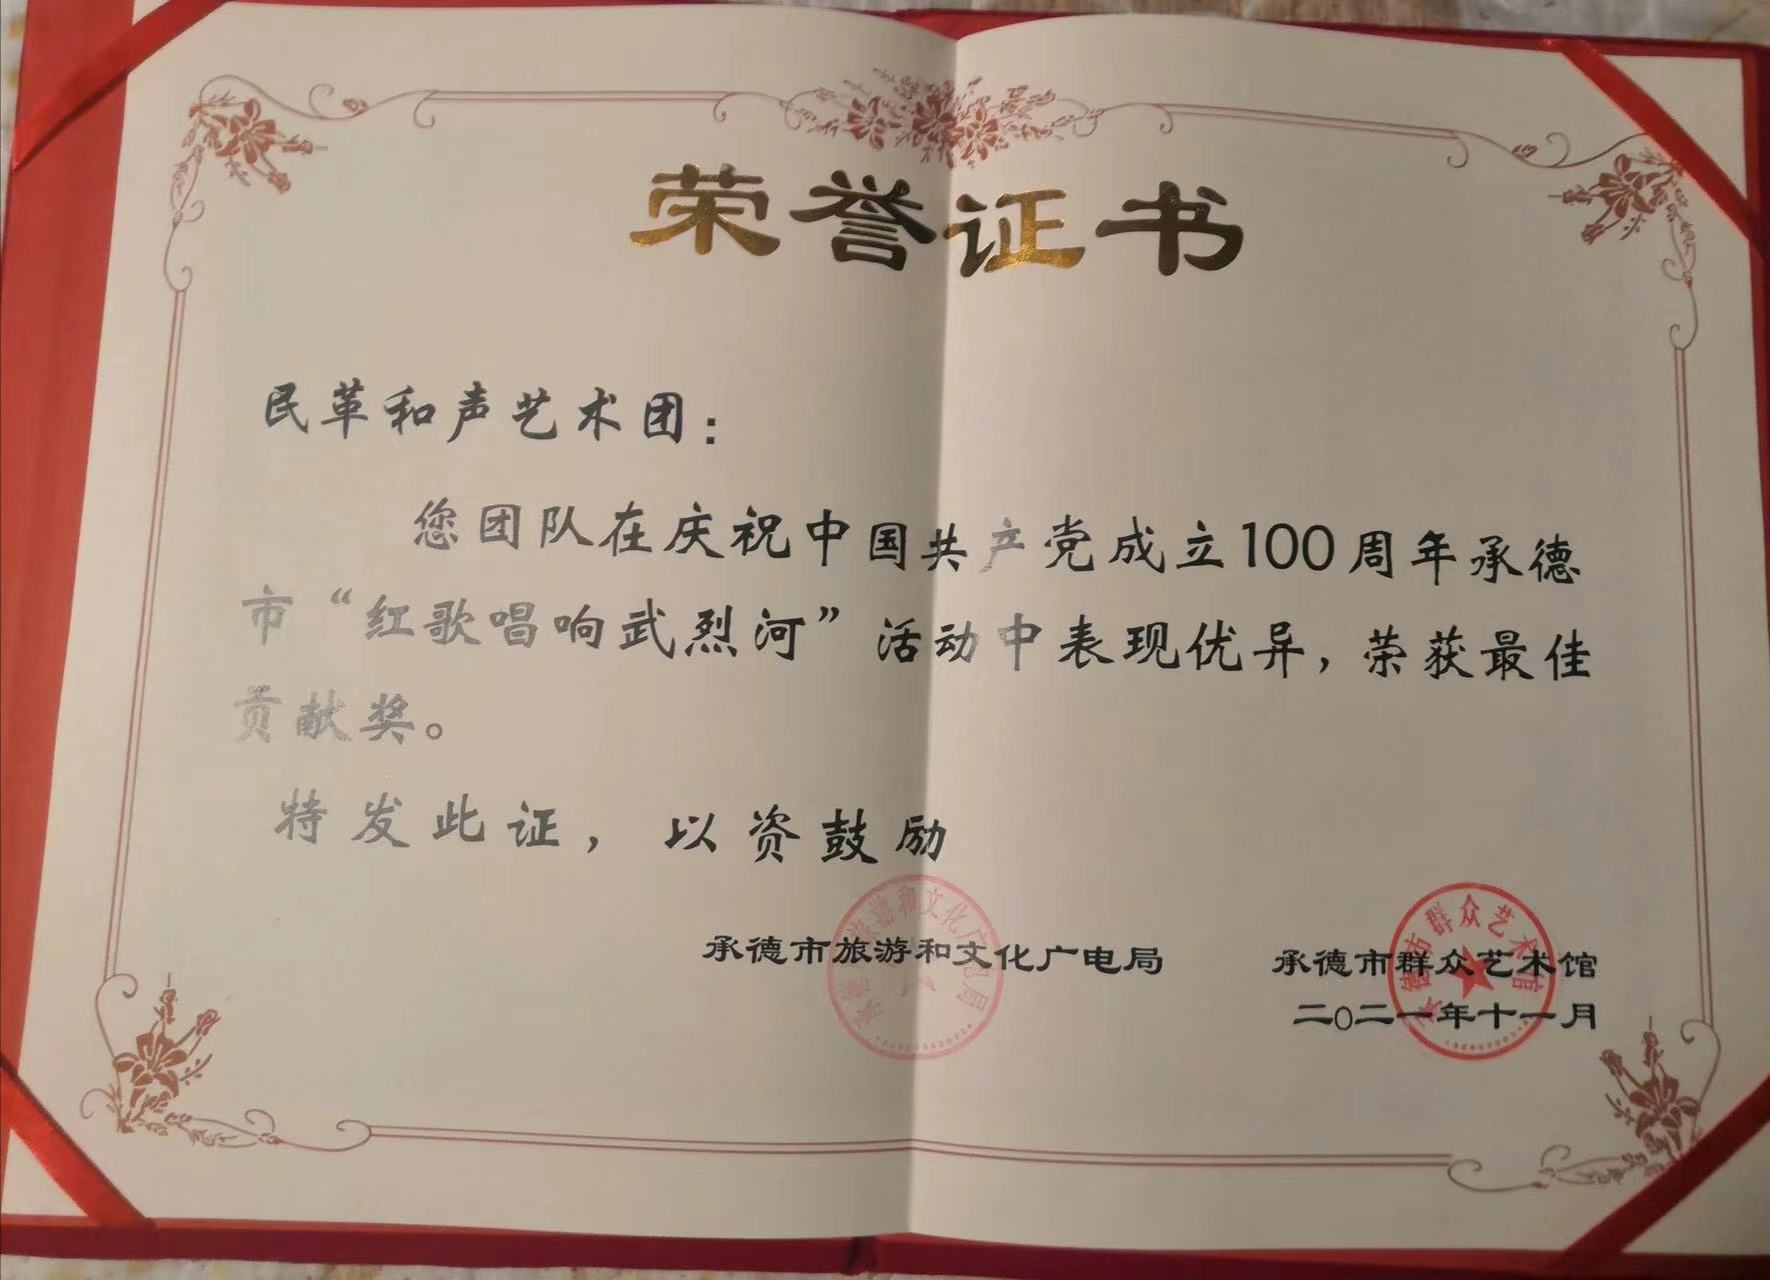 荣誉证书
民革和声艺术团：
您团队在庆祝中国共产党成立100周年承德
市“红歌唱响武烈河”活动中表现优异，荣获最佳
贡献奖。
特发此证，以资鼓励
承德市旅游和文化广电局
承德市群众艺术馆
二〇二一年十一月
承德市旅游和文化广电局
承德市群众艺术馆